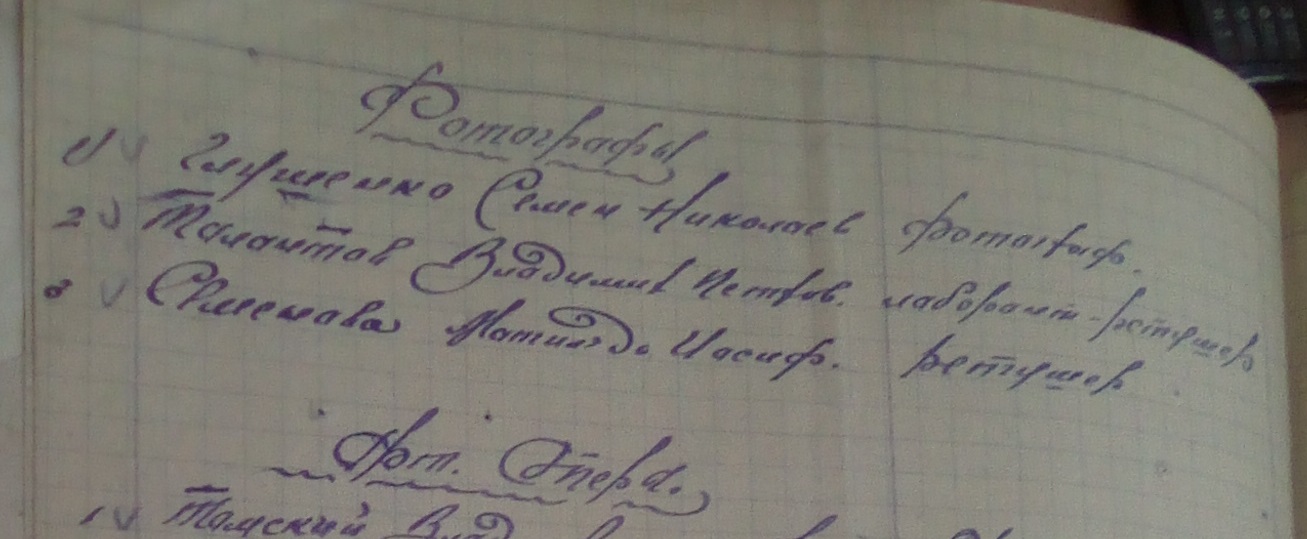 Фотографы
1/ v Глущенко Семен Николаев фотограф.
2 v Талантов Владимир Петров. лаборант-ретушер
3 v Семенова Матильда Иосиф. ретушер
Арт. Опера.
1 v Томский Влад